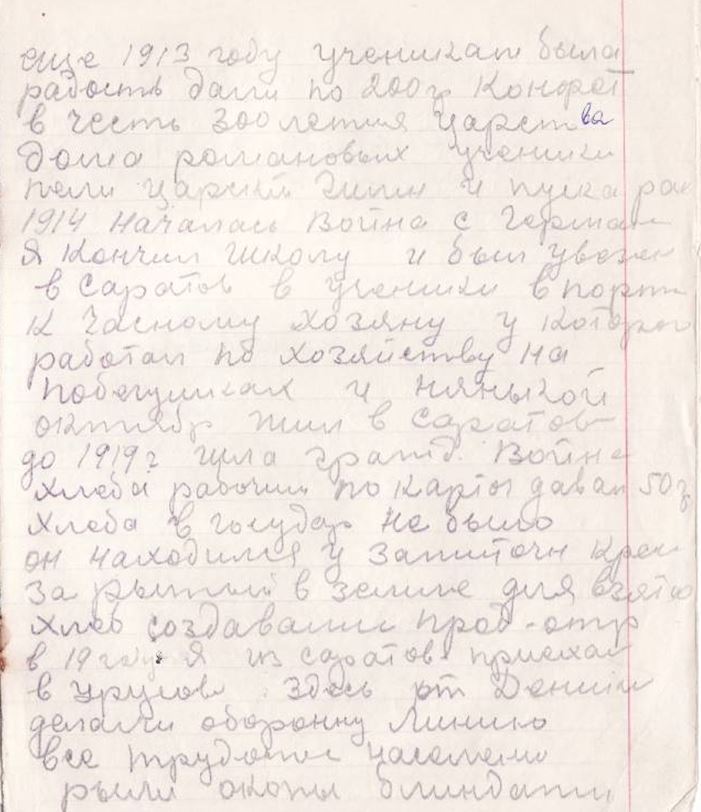 еще 1913 году ученикам была
радость дали по 200 гр Конфет
в честь 300 летия царства
дома романовых ученики
пели царский Гимн и
1914 началась Война с Герман
я Кончил школу и был увезен
в Саратов в ученики в
К часному хозяну у которого
работал по хозяйству на
побегушках и нянькой
октябр жил в Саратов
до 1919 г шла гражд. Война
хлеба рабочим по карты давал 50 г
хлеба в государ не было
он находился у зажиточн
зарытый в земле для взятия
хлеб создавали прод-отр
в 19 году я из саратов приехал
в здесь от Дении
делали оборонну Линию
все трудовое населени
рыли окопы блиндажи